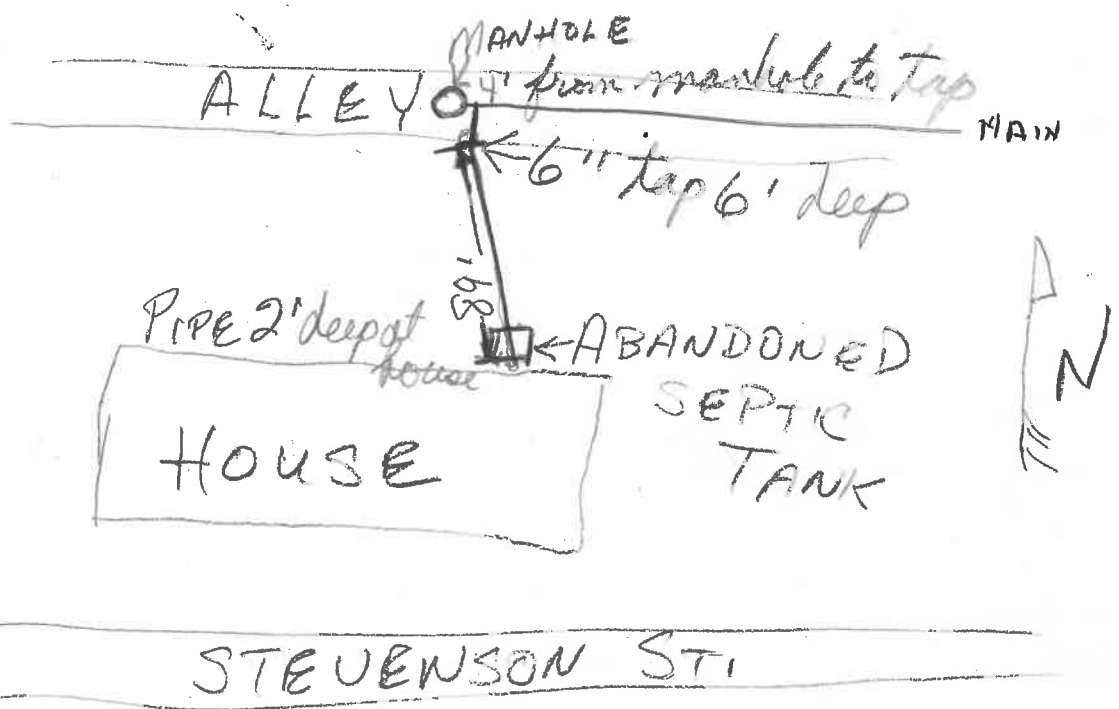 MANHOLE
ALLEY 4' from manhole to Tap
MAIN
6" tap 6' deep
89'
PIPE 2' deep at
house
ABANDONED
SEPTIC
TANK
N
HOUSE
STEVENSON ST.